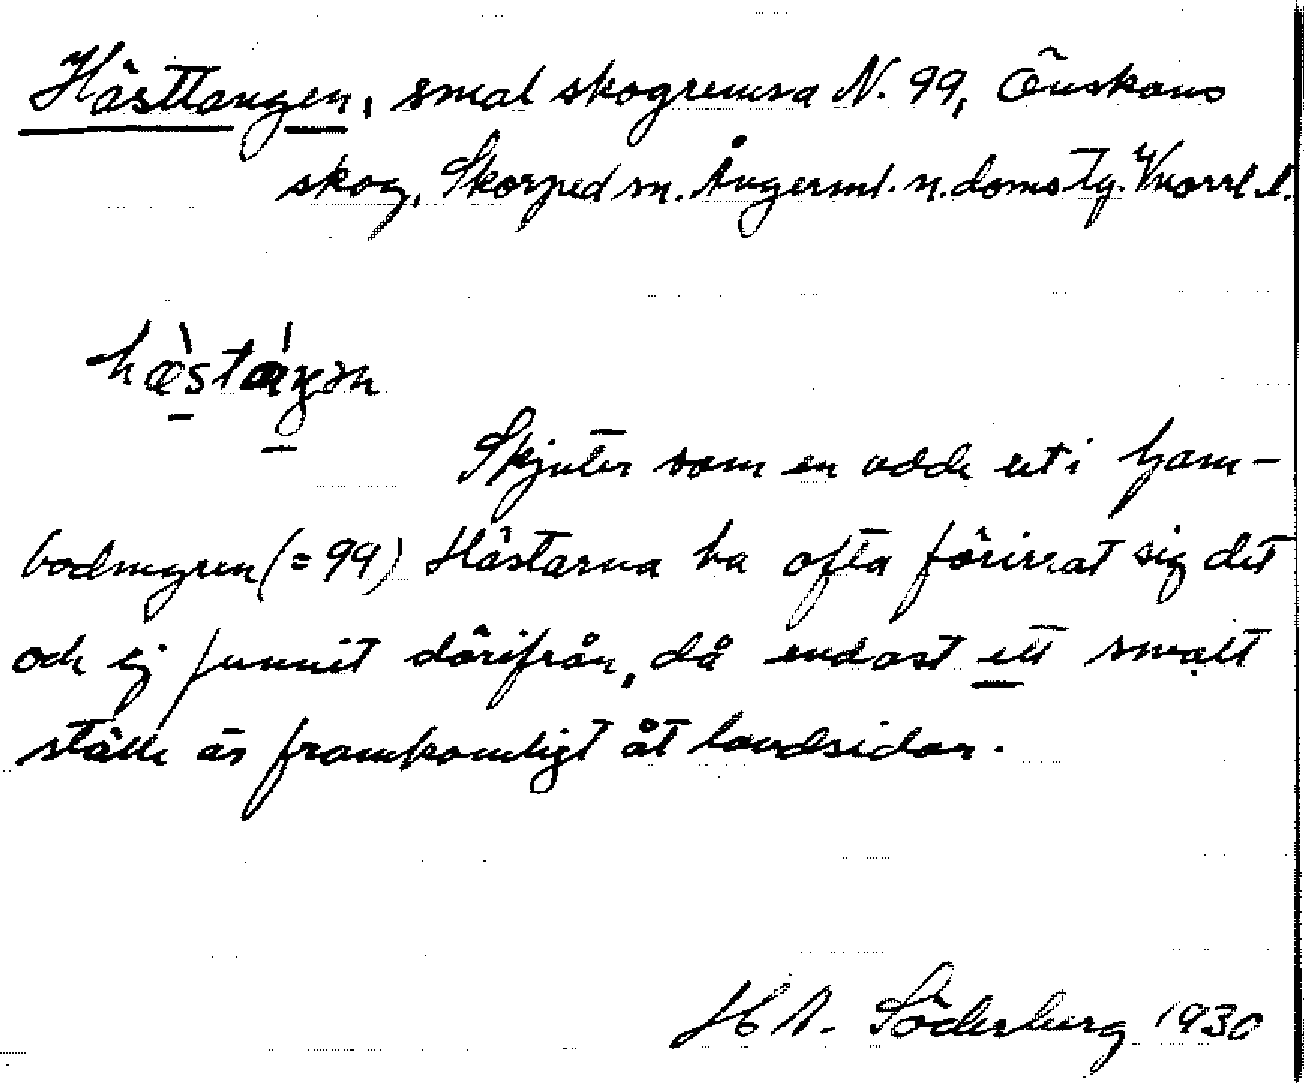 Hästtangen, smal skogremsa N. 99, Önskans
skog, Skorped sn. Ångerml. n. doms tg. Vnorrl. l.
hæstáŋən
Skjuter som en udde ut i
bodmyren (= 99) Hästarna ha ofta förirrat sig dit
och ej funnit därifrån, då endast ett smalt
ställe är framkomligt åt landsidan.
H A. Söderberg 1930